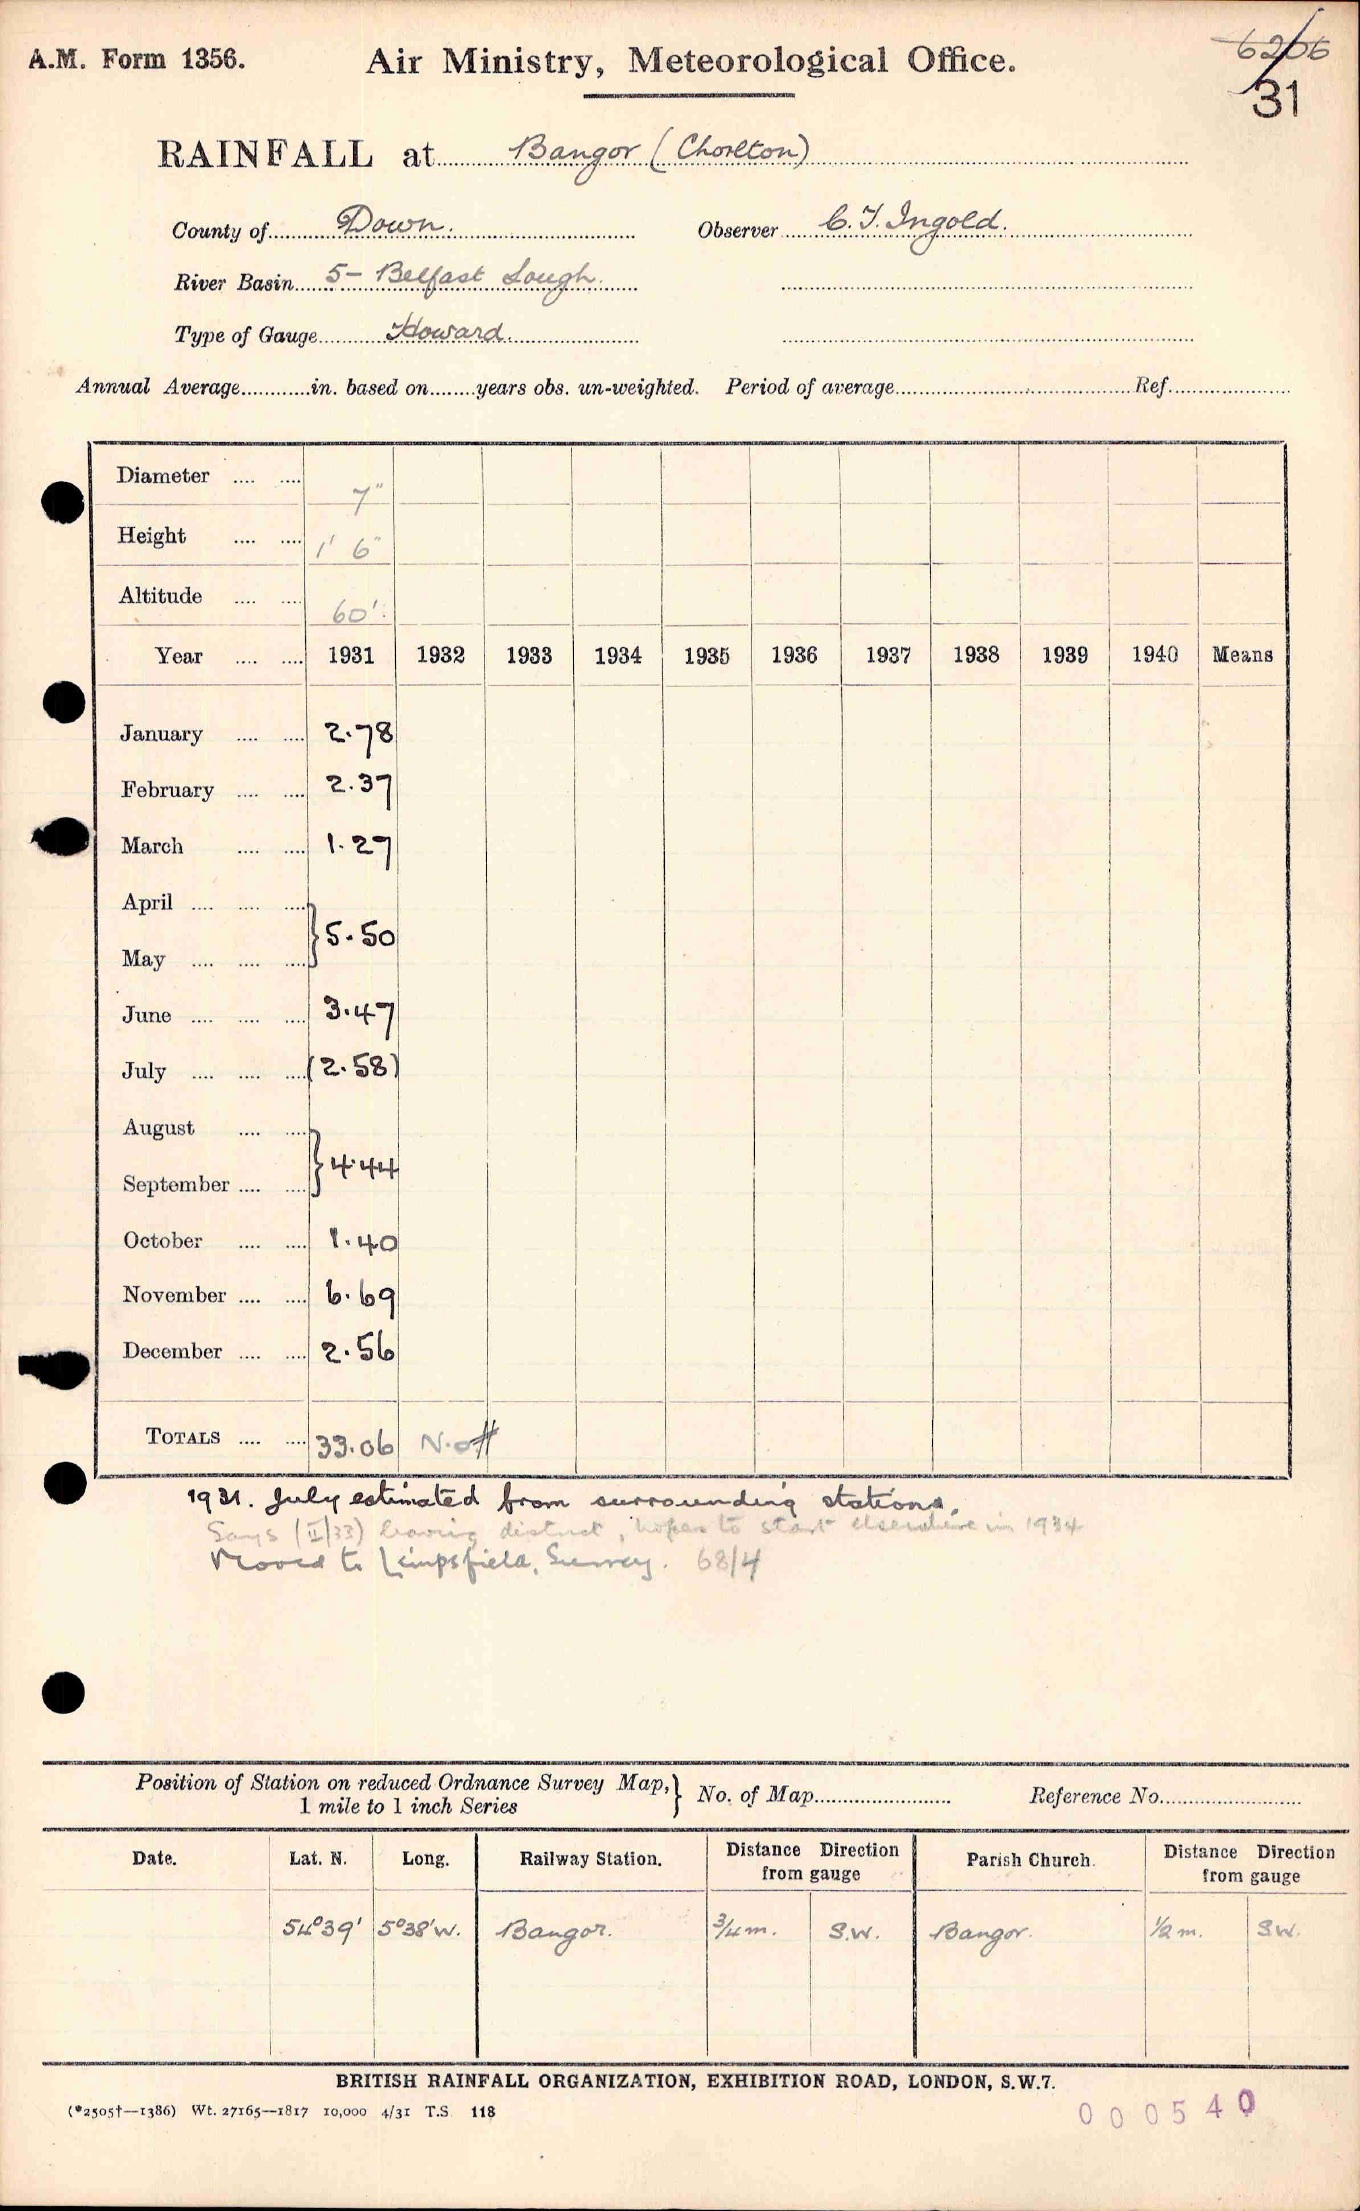 A.M. Form 1356.
Air Ministry, Meteorological Office.
6206
31
RAINFALL at Bangor (Chorlton)
County of Down. Observer C.T. Ingold.
River Basin 5- Belfast Lough.
Type of Gauge Howard.
Annual Average in. based on years obs. un-weighted. Period of average Ref.
Diameter 7"
Height 1' 6"
Altitude 60'
Year 1931 1932 1933 1934 1935 1936 1937 1938 1939 1940 Means
January 2.78
February 2.37
March 1.27
April
} 5.50
May
June 3.47
July (2.58)
August
} 4.44
September
October 1.40
November 6.69
December 2.56
TOTALS 33.06 No #
1931. July estimated from surrounding stations.
Says (II/33) leaving district, hopes to start elsewhere in 1934
Moved to Limpsfield, Surrey. 68/4
Position of Station on reduced Ordnance Survey Map, } No. of Map Reference No.
1 mile to 1 inch Series
Date. Lat. N. Long. Railway Station. Distance Direction from gauge Parish Church. Distance Direction from gauge
54°39' 5°38'W. Bangor. 3/4 m. S.W. Bangor. 1/2 m. S.W.
BRITISH RAINFALL ORGANIZATION, EXHIBITION ROAD, LONDON, S.W.7.
(*2505†—1386) Wt. 27165—1817 10,000 4/31 T.S. 118
000540